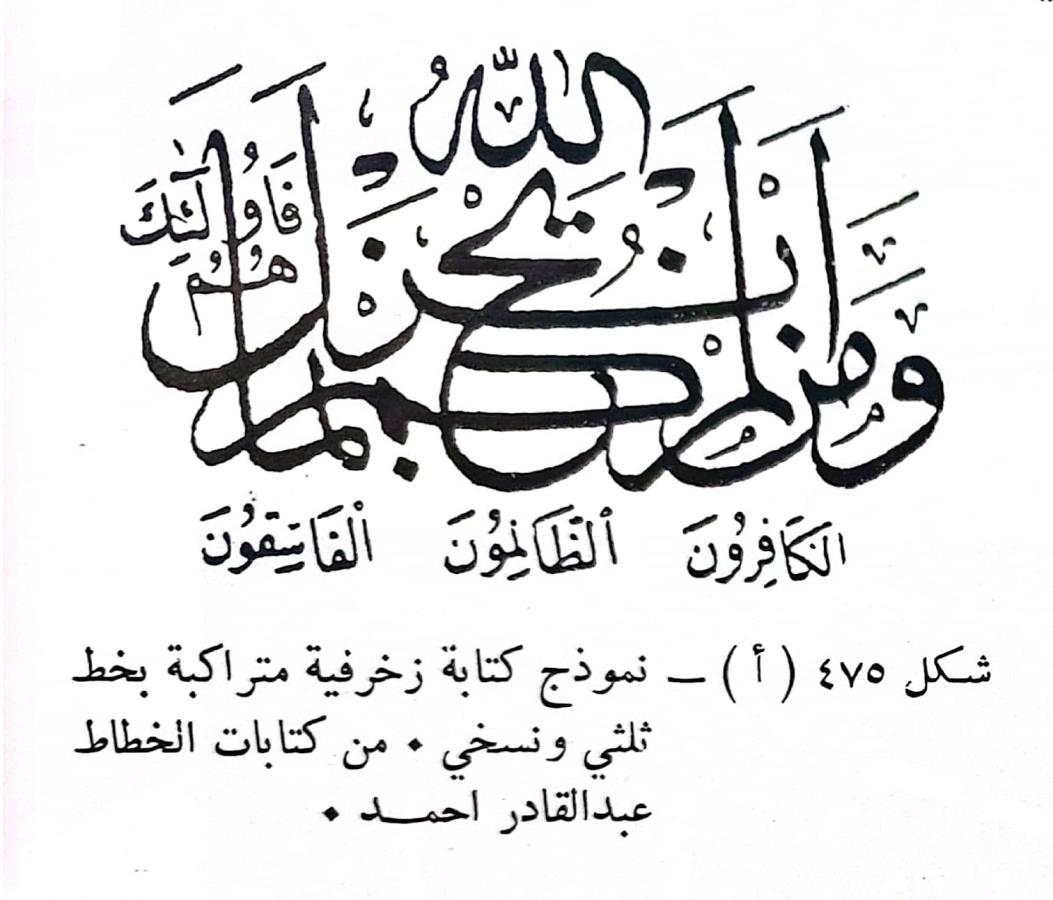 وَمَن لَّمْ يَحْكُم بِمَا أَنزَلَ اللَّهُ فَأُولَٰئِكَ هُمُ
الْكَافِرُونَ الظَّالِمُونَ الْفَاسِقُونَ
شكل ٤٧٥ (أ) ــ نموذج كتابة زخرفية متراكبة بخط
ثلثي ونسخي . من كتابات الخطاط
عبدالقادر احمد .